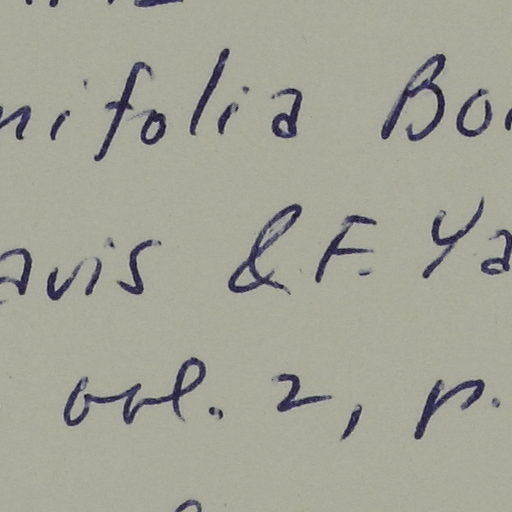 nifolia Bo
avis & F. Ya
vol. 2, p.